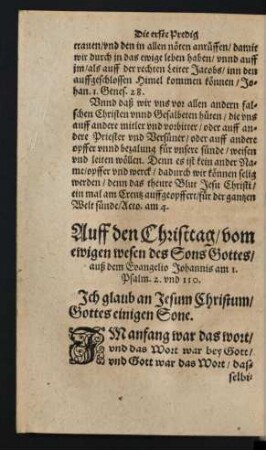 Die erste Predig
trauen/vnd den in allen nöten anrüffen/ damit
wir durch jn das ewige leben haben/ vnnd auff
jm/als auff der rechten Leiter Jacobs/ inn den
auffgeschlossen Himel kommen können/ Jo-
han. 1. Genes. 28.
Vnnd daß wir vns vor allen andern fal-
schen Christen vnnd Gesalbeten hüten/ die vns
auff andere mitler vnd vorbitter/ oder auff an-
der Priester vnd Versüner/ oder auff andere
opffer vnnd bezalung für vnsere sünde/ weisen
vnd leiten wöllen. Denn es ist kein ander Na-
me/opffer vnd werck/ dadurch wir können selig
werden/ denn das theure Blut Jesu Christi/
ein mal am Creutz auffgeopffert/für der gantzen
Welt sünde/Acto. am 4.
Auff den Christtag/vom
ewigen wesen des Sons Gottes/
auß dem Euangelio Johannis am 1.
Psalm. 2. vnd 110.
Jch glaub an Jesum Christum/
Gottes einigen Sone.
IM anfang war das wort/
vnd das Wort war bey Gott/
vnd Gott war das Wort/ das-
selbi-